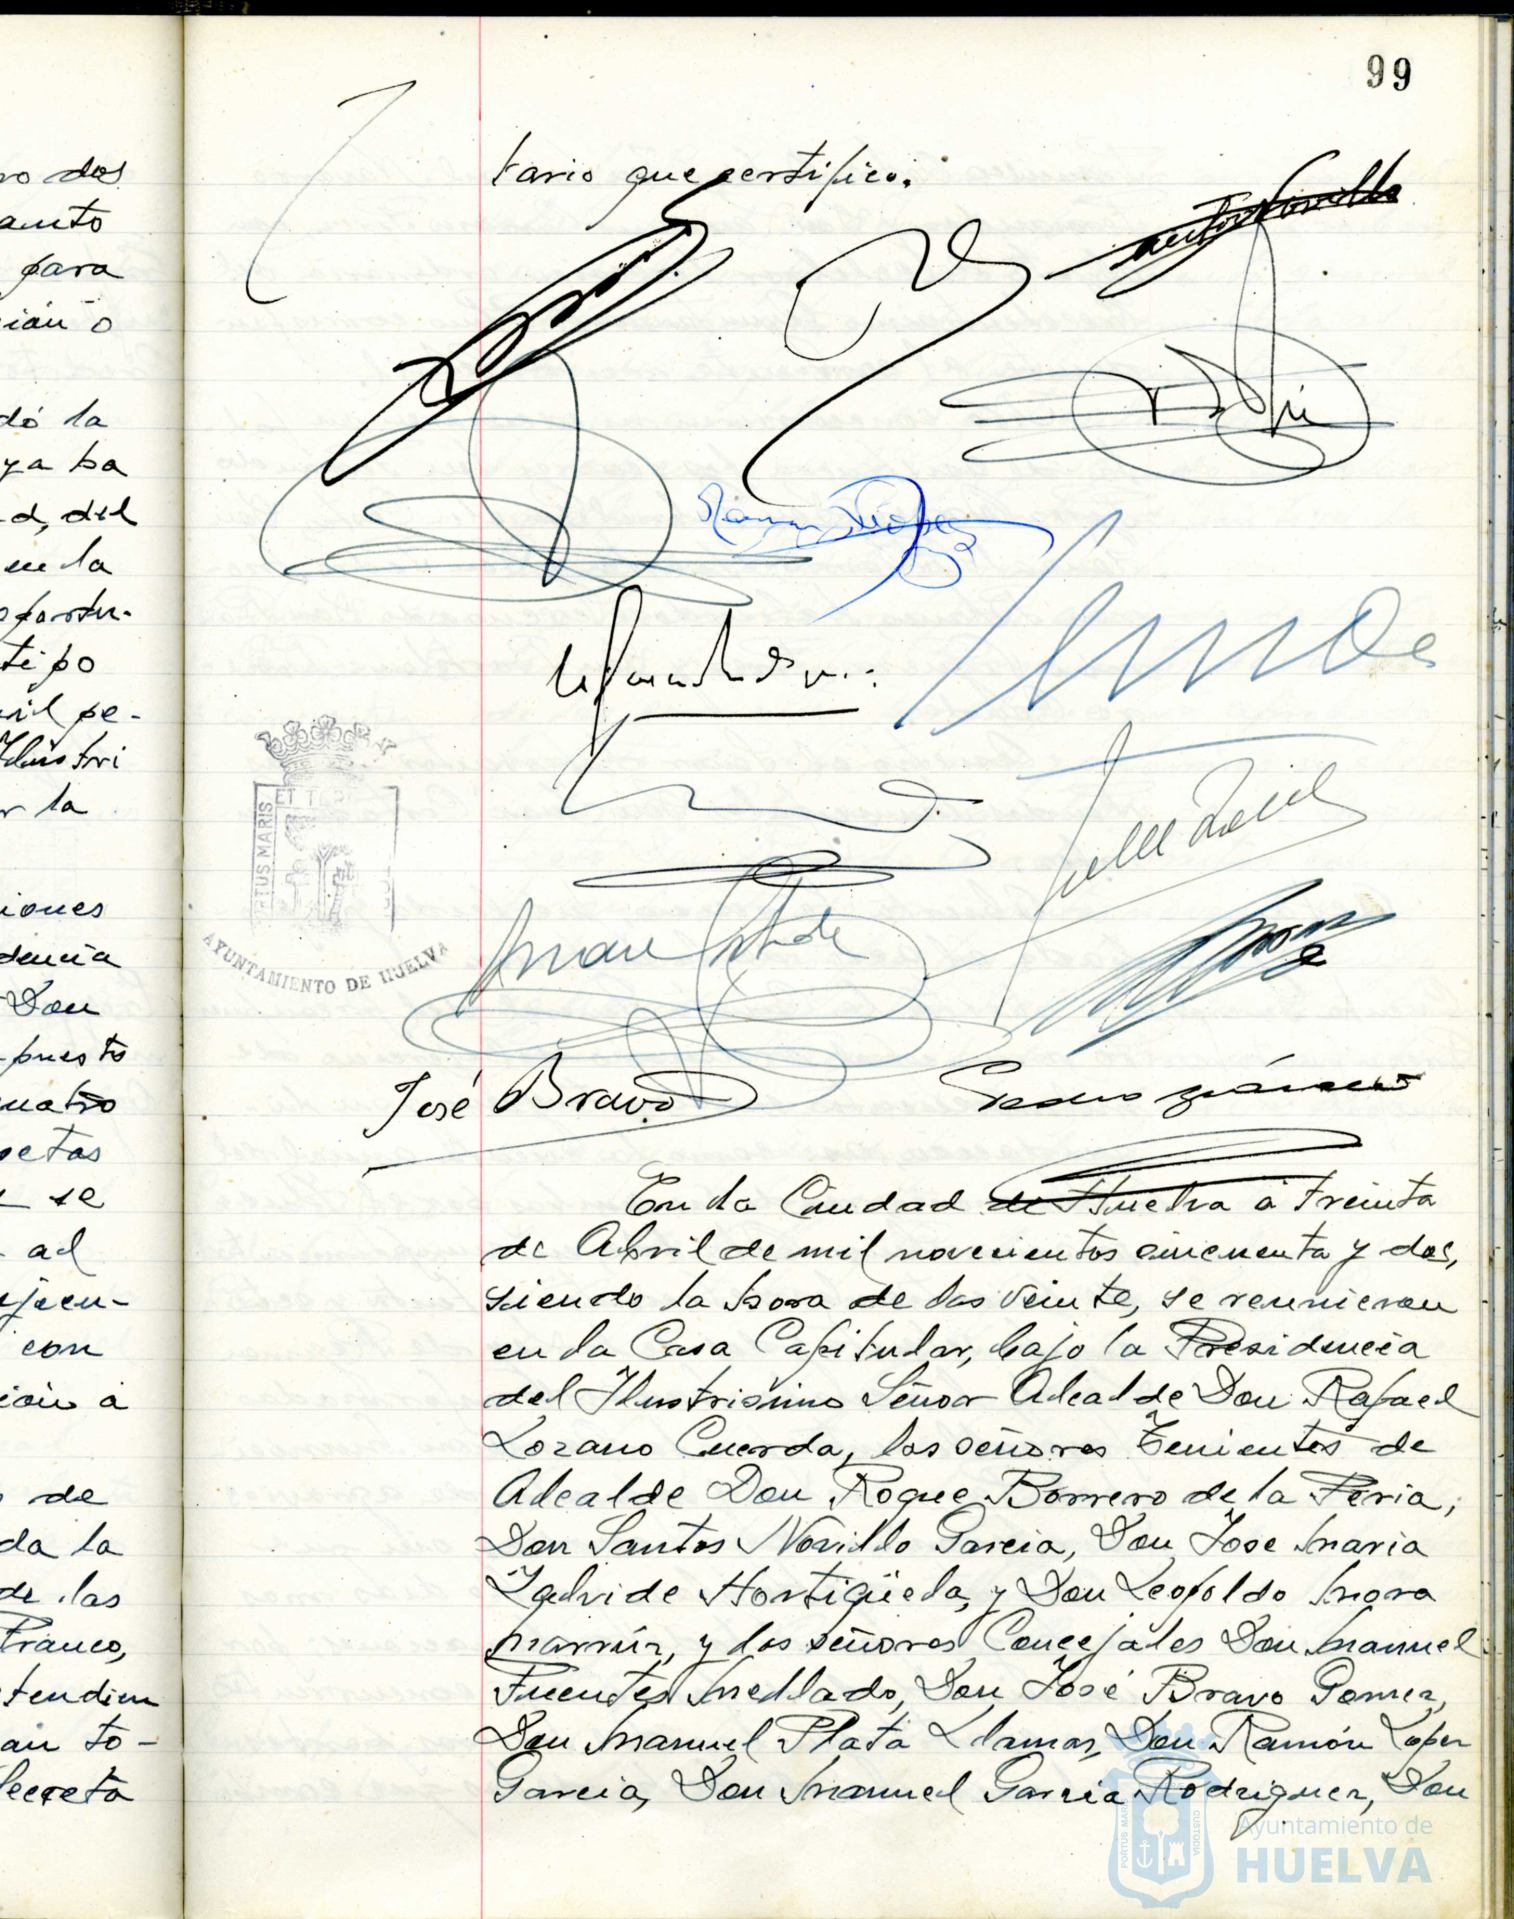 99
ro dos
anto
para
ción o
dó la
ya ha
d, del
en la
oportu-
tipo
vil pe-
Ilustri
r la
iones
dencia
Don
puesto
uatro
setas
se
al
ejecu-
con
ción a
de
da la
de las
Franco,
tendien
an to-
Secreta
tario que certifico.
ET TERRAE
PORTUS MARIS
AYUNTAMIENTO DE HUELVA
José Bravo
En la Ciudad de Huelva á treinta
de Abril de mil novecientos cincuenta y dos,
siendo la hora de las veinte, se reunieron
en la Casa Capitular, bajo la Presidencia
del Ilustrisimo Señor Alcalde Don Rafael
Lozano Cuerda, los señores Tenientes de
Alcalde Don Roque Borrero de la Feria,
Don Santos Novillo Garcia, Don Jose Maria
Zalvide Hortigüela, y Don Leopoldo Mora
Marrúz, y los señores Concejales Don Manuel
Fuentes Mellado, Don José Bravo Gomez,
Don Manuel Plata Llamas, Don Ramón Lopez
Garcia, Don Manuel Garcia Rodriguez, Don
PORTUS MARIS
CUSTODIA
Ayuntamiento de
HUELVA